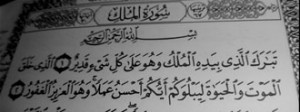 سُورَةُ المُلْكِ
بِسْمِ اللَّهِ الرَّحْمَٰنِ الرَّحِيمِ
تَبَٰرَكَ ٱلَّذِى بِيَدِهِ ٱلْمُلْكُ وَهُوَ عَلَىٰ كُلِّ شَىْءٍ قَدِيرٌ ١ ٱلَّذِى خَلَقَ
ٱلْمَوْتَ وَٱلْحَيَوٰةَ لِيَبْلُوَكُمْ أَيُّكُمْ أَحْسَنُ عَمَلًا وَهُوَ ٱلْعَزِيزُ ٱلْغَفُورُ ٢